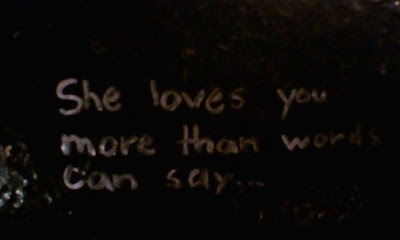 She loves you
more than words
can say...